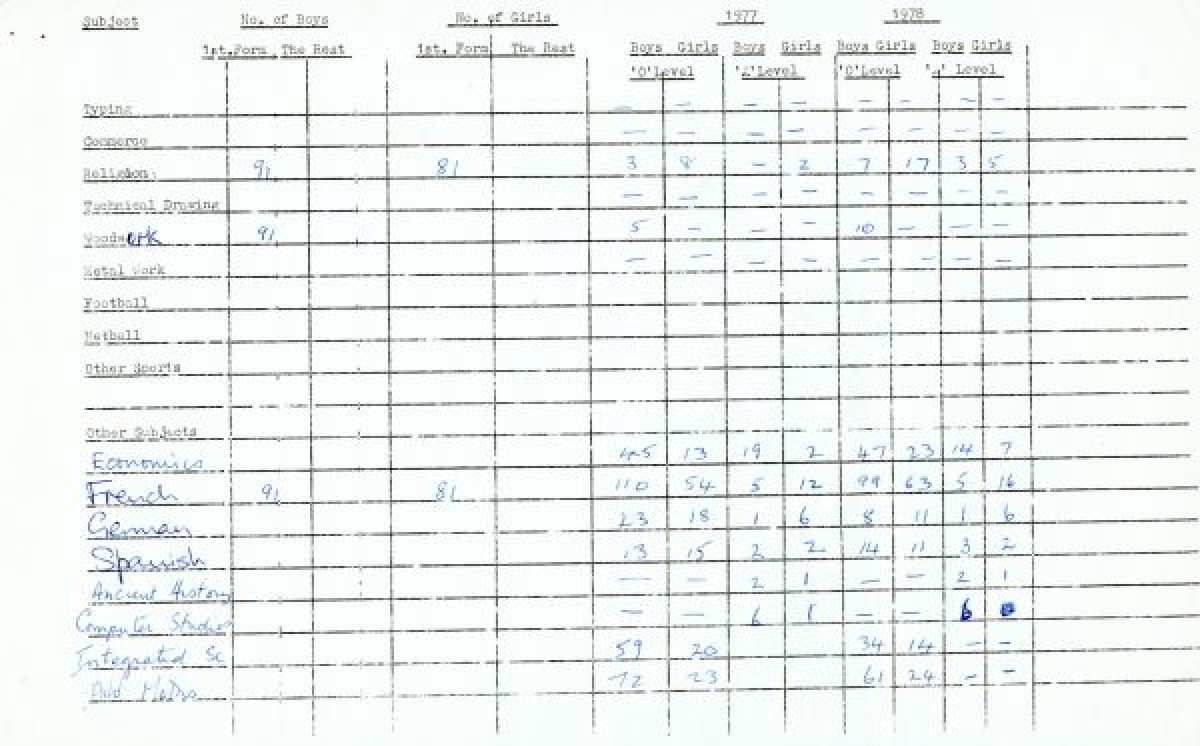 Subject No. of Boys No. of Girls 1977 1978
1st.Form The Rest 1st. Form The Rest Boys Girls Boys Girls Boys Girls Boys Girls
'O'Level 'A'Level 'O'Level 'A' Level
Typing — — — — — — — —
Commerce — — — — — — — —
Religion 91 81 3 8 — 2 7 17 3 5
Technical Drawing — — — — — — — —
Woodwork 91 5 — — — 10 — — —
Metal Work — — — — — — — —
Football
Netball
Other Sports
Other Subjects
Economics 45 13 19 2 47 23 14 7
French 91 81 110 54 5 12 99 63 5 16
German 23 18 1 6 8 11 1 6
Spanish 13 15 2 2 14 11 3 2
Ancient History — — 2 1 — — 2 1
Computer Studies — — 6 1 — — 6 0
Integrated Sc 59 20 34 14 — —
72 23 61 24 — —